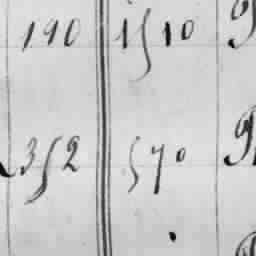 190 1510
352 570